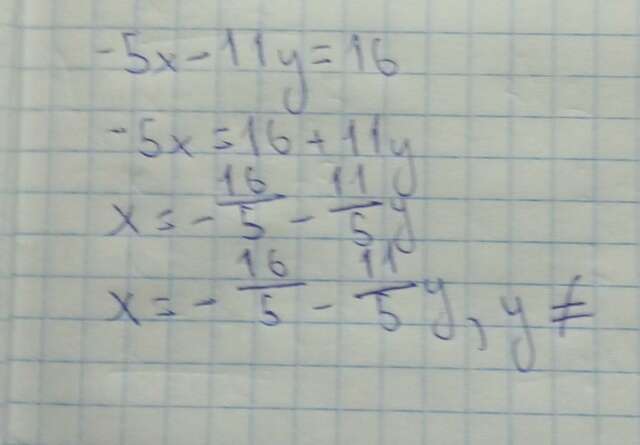 -5x-11y=16
-5x=16+11y
x=-16/5-11/5y
x=-16/5-11/5y, y≠